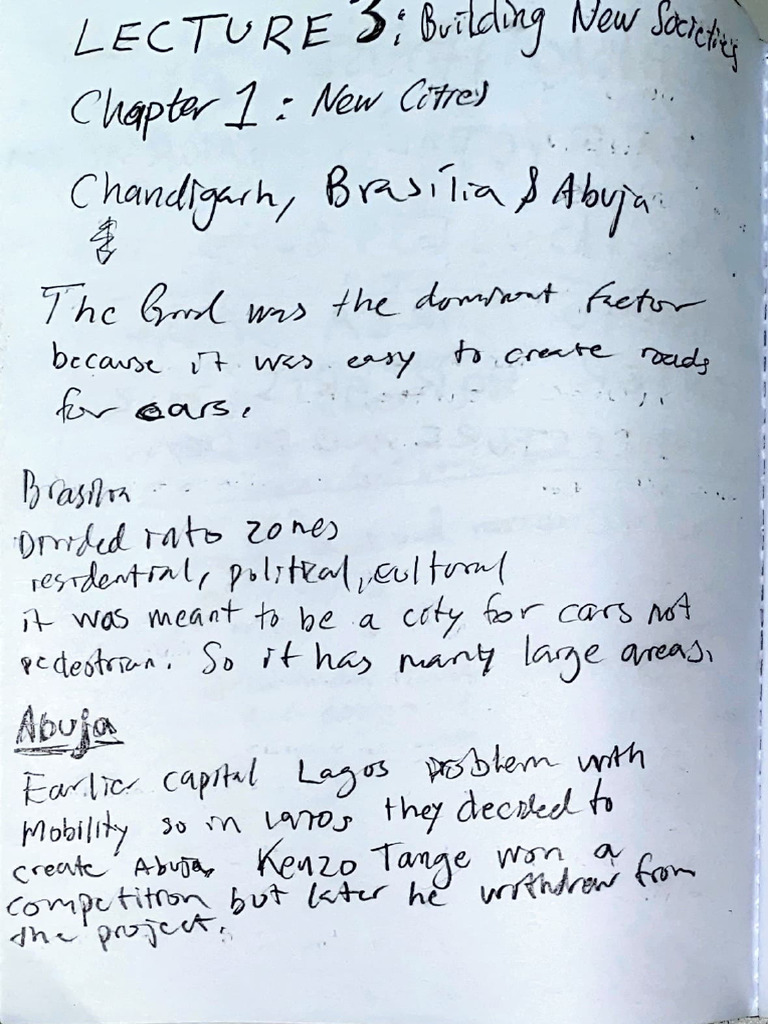 LECTURE 3: Building New Societies
Chapter 1: New Cities
Chandigarh, Brasília & Abuja
The Grid was the dominant factor
because it was easy to create roads
for cars.
Brasilia
Divided into zones
residential, political, cultural
it was meant to be a city for cars not
pedestrian. So it has many large areas.
Abuja
Earlier capital Lagos problem with
Mobility so in they decided to
create Abuja, Kenzo Tange won a
competition but later he withdrew from
the project.